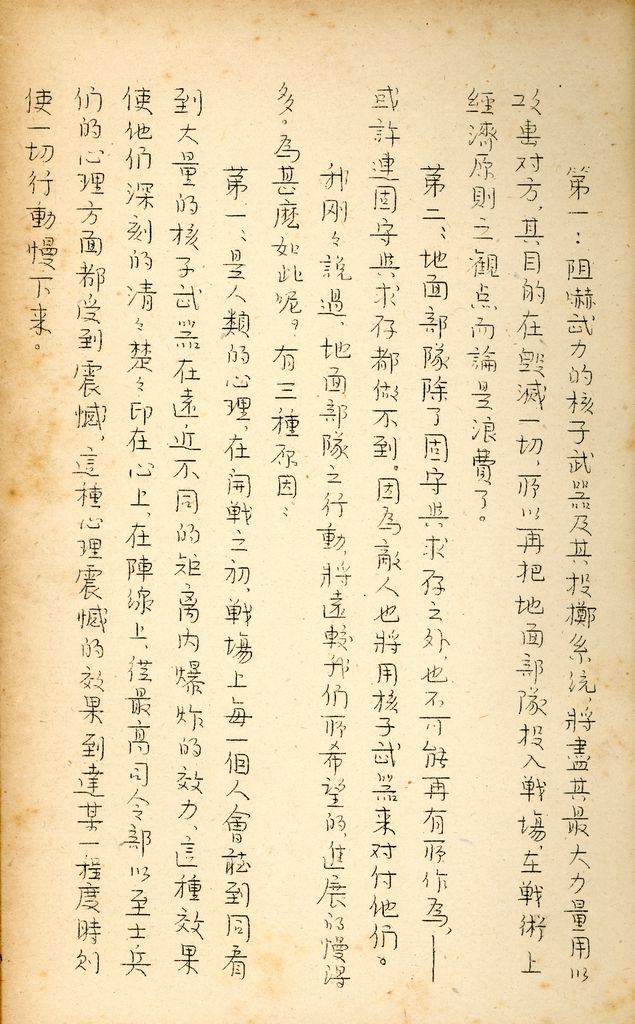 第一：阻嚇武力的核子武器及其投擲系统，將盡其最大力量用以
攻击对方，其目的在毀滅一切，所以再把地面部隊投入戰場，在戰術上
經濟原則之觀点而論是浪費了。
第二、地面部隊除了固守與求存之外，也不可能再有所作為，—
或許連固守與求存都做不到。因為敵人也將用核子武器来对付他们。
我刚々說過，地面部隊之行動，將遠較我们所希望的進展的慢得
多。為甚麽如此呢？有三種原因：
第一、是人類的心理，在開戰之初，戰場上每一個人會
到大量的核子武器在遠近不同的距离内爆炸的效力、這種效果
使他们深刻的清々楚々印在心上，在陣線上，從最高司令部以至士兵
们的心理方面都受到震憾，這種心理震憾的效果到達某一程度時則
使一切行動慢下来。